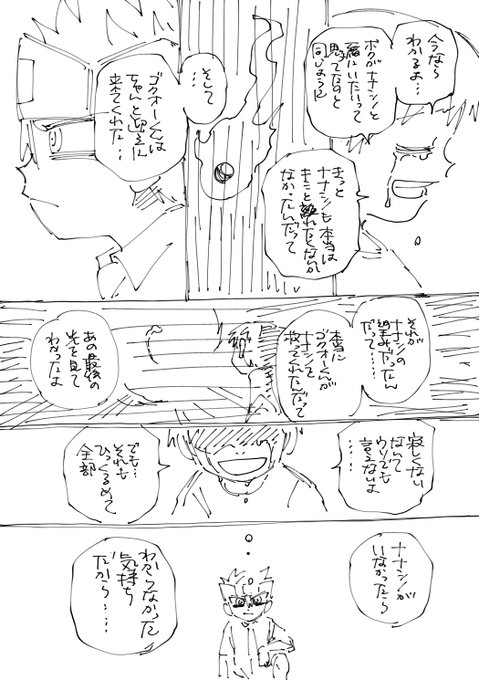 今なら
わかるよ…
ボクがナナシノと
一緒にいたいって
思ってたのと
同じように
きっと
ナナシノも本当は
きっと離れたくなんか
なかったんだって
…そして
ゴクオーくんは
ちゃんと迎えに
来てくれた…
それが
ナナシノの
望みだったん
だって……
本当に
ゴクオーくんが
ナナシノを
救ってくれたんだって
あの最後の
光を見て
わかったよ
寂しくない
なんて
ウソでも
言えないよ
……
でも…
それも
ひっくるめて
全部
ナナシノが
いなかったら
わからなかった
気持ち
だから……